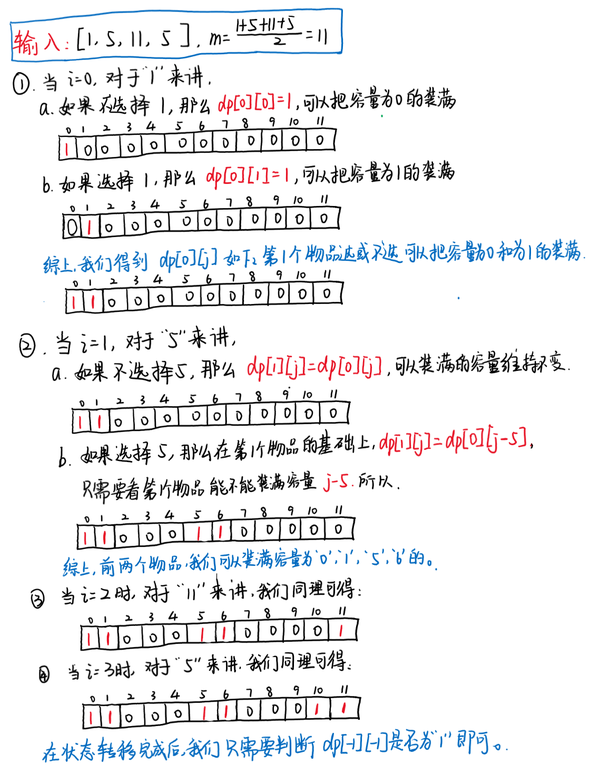 输入: [1, 5, 11, 5], m= 1+5+11+5 / 2 = 11
①. 当 i=0, 对于"1"来讲,
a. 如果不选择 1, 那么 dp[0][0]=1, 可以把容量为0的装满
0 1 2 3 4 5 6 7 8 9 10 11
1 0 0 0 0 0 0 0 0 0 0 0
b. 如果选择 1, 那么 dp[0][1]=1, 可以把容量为1的装满
0 1 2 3 4 5 6 7 8 9 10 11
0 1 0 0 0 0 0 0 0 0 0 0
综上,我们得到 dp[0][j] 如下, 第1个物品选或不选可以把容量为0和为1的装满.
0 1 2 3 4 5 6 7 8 9 10 11
1 1 0 0 0 0 0 0 0 0 0 0
②. 当 i=1, 对于"5"来讲,
a. 如果不选择5, 那么 dp[1][j]=dp[0][j], 可以装满的容量维持不变.
0 1 2 3 4 5 6 7 8 9 10 11
1 1 0 0 0 0 0 0 0 0 0 0
b. 如果选择 5, 那么在第1个物品的基础上, dp[1][j]=dp[0][j-5],
只需要看第1个物品能不能装满容量 j-5. 所以.
0 1 2 3 4 5 6 7 8 9 10 11
1 1 0 0 0 1 1 0 0 0 0 0
综上, 前两个物品,我们可以装满容量为'0','1','5','6'的。
③ 当 i=2时, 对于"11"来讲,我们同理可得:
0 1 2 3 4 5 6 7 8 9 10 11
1 1 0 0 0 1 1 0 0 0 0 1
④ 当 i=3时, 对于"5"来讲.我们同理可得:
0 1 2 3 4 5 6 7 8 9 10 11
1 1 0 0 0 1 1 0 0 0 1 1
在状态转移完成后,我们只需要判断 dp[-1][-1]是否为"1"即可。